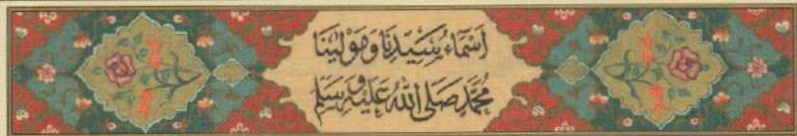 أَسْمَاءُ سَيِّدِنَا وَمَوْلَيْنَا
مُحَمَّدٍ صَلَّى اللهُ عَلَيْهِ وَسَلَّمَ